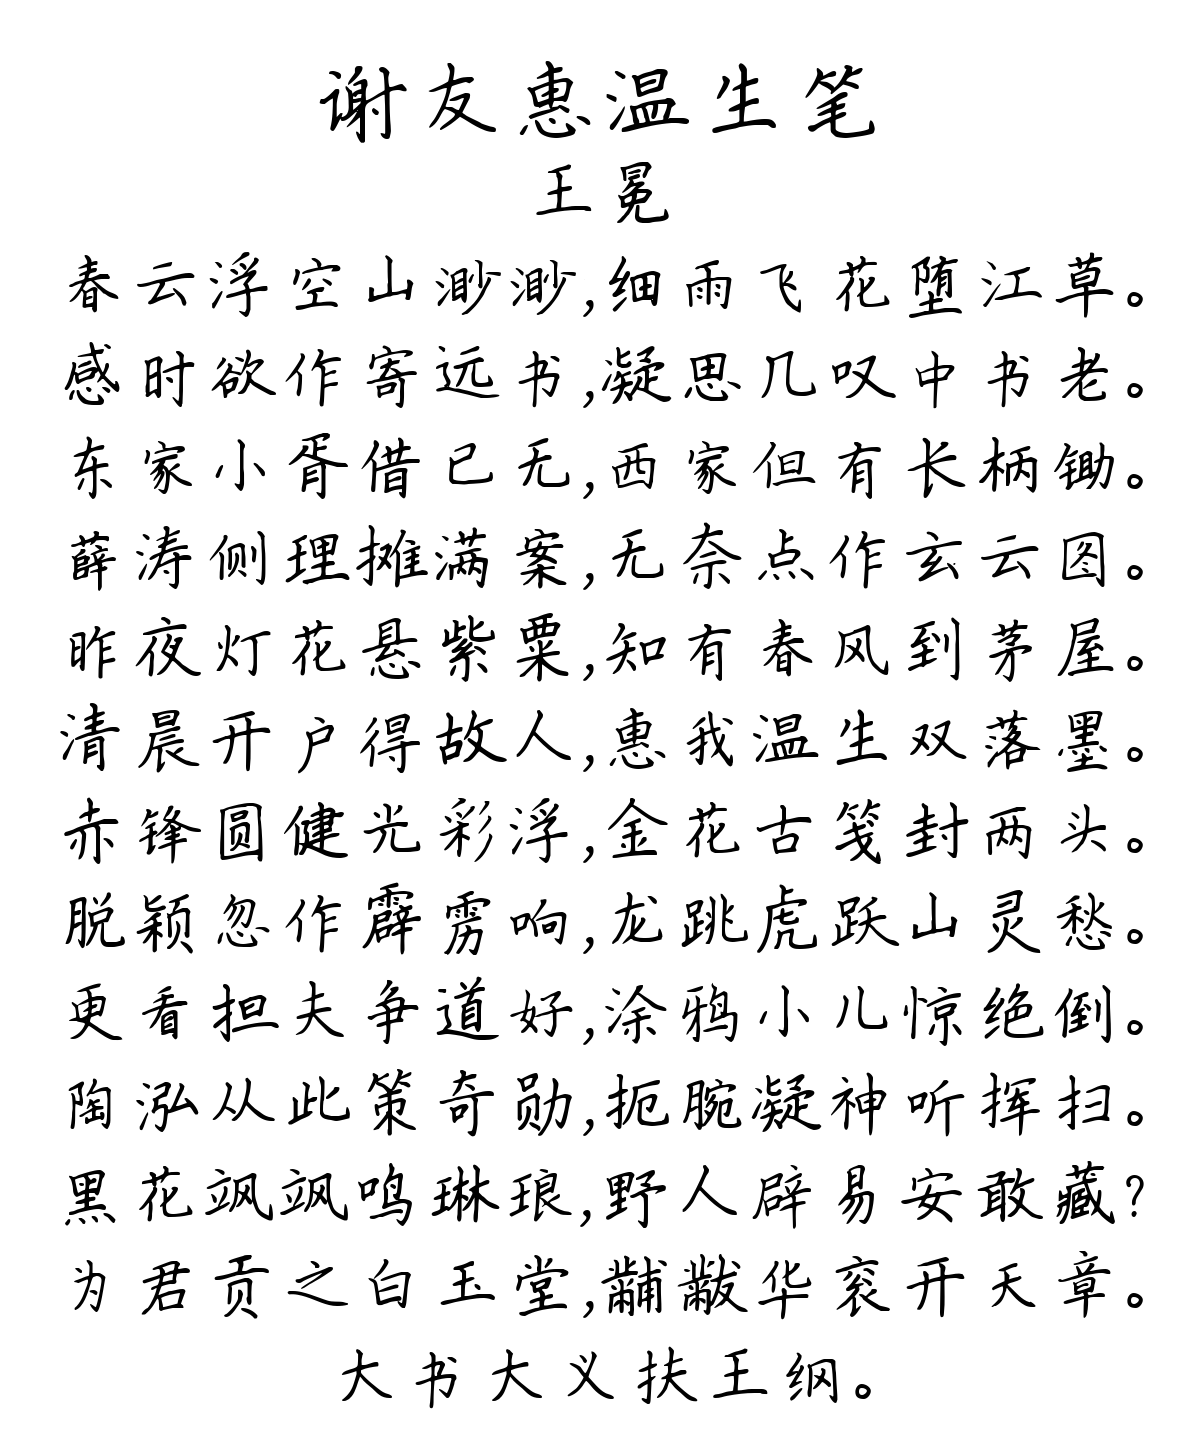 谢友惠温生笔
王冕
春云浮空山渺渺,细雨飞花堕江草。
感时欲作寄远书,凝思几叹中书老。
东家小胥借已无,西家但有长柄锄。
薛涛侧理摊满案,无奈点作玄云图。
昨夜灯花悬紫粟,知有春风到茅屋。
清晨开户得故人,惠我温生双落墨。
赤锋圆健光彩浮,金花古笺封两头。
脱颖忽作霹雳响,龙跳虎跃山灵愁。
更看担夫争道好,涂鸦小儿惊绝倒。
陶泓从此策奇勋,扼腕凝神听挥扫。
黑花飒飒鸣琳琅,野人辟易安敢藏?
为君贡之白玉堂,黼黻华衮开天章。
大书大义扶王纲。